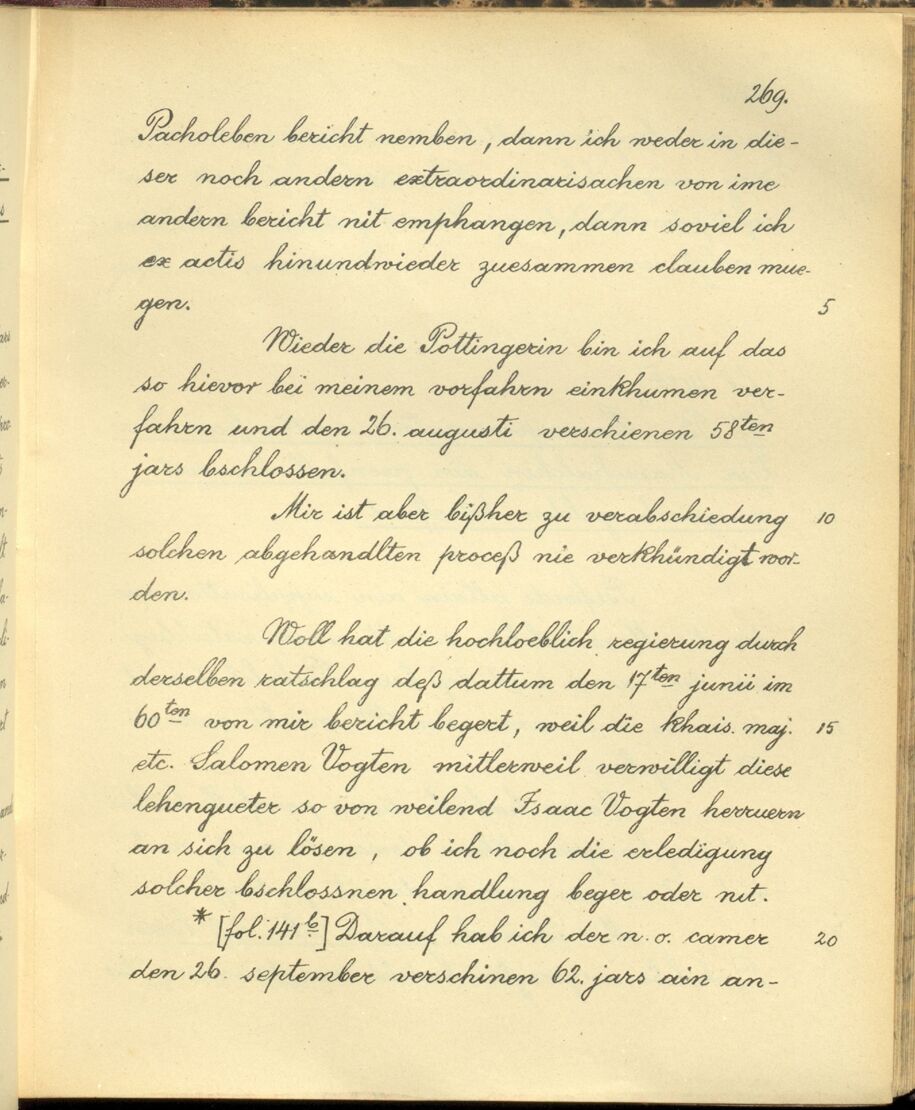 269.
Pacholeben bericht nemben, dann ich weder in die-
ser noch andern extraordinarisachen von ime
andern bericht nit emphangen, dann soviel ich
ex actis hinundwieder zuesammen clauben mue-
gen. 5
Wieder die Pottingerin bin ich auf das
so hievor bei meinem vorfahrn einkhumen ver-
fahrn und den 26. augusti verschienen 58ten
jars bschlossen.
Mir ist aber bißher zu verabschiedung 10
solchen abgehandlten proceß nie verkhündigt wor-
den.
Woll hat die hochloeblich regierung durch
derselben ratschlag deß dattum den 17ten junii im
60ten von mir bericht begert, weil die khais. maj. 15
etc. Salomen Vogten mitlerweil verwilligt diese
lehengueter so von weilend Isaac Vogten herruern
an sich zu lösen, ob ich noch die erledigung
solcher bschlossnen handlung beger oder nit.
* [fol. 141b] Darauf hab ich der n. o. camer 20
den 26. september verschinen 62. jars ain an-